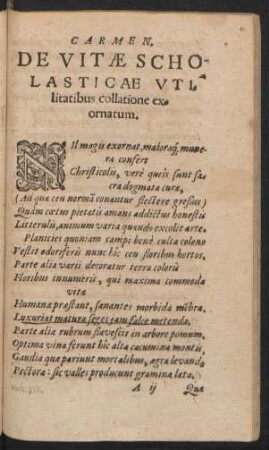 CARMEN,
DE VITÆ SCHO-
LASTICAE VTI-
litatibus collatione ex-
ornatum.
NIl magis exornat, maioraq́; mune-
ra confert
Christicolis, verè queis sunt sa-
cra dogmata curæ,
(Ad quæ ceu normā conantur flectere gressus)
Quàm cœtus pietatis amans addictus honestis
Litterulis, animum varia quando excolit arte.
Planicies quoniam campi benè culta colono
Vestit odoriferis nunc hîc ceu floribus hortos,
Parte alia varii decoratur terra coloris
Floribus innumeris, qui maxima commoda
vitæ
Humanæ præstant, sanantes morbida mēbra.
Luxuriat matura seges iam falce metenda,
Parte alia rubrum flavescit in arbore pomum.
Optima vina ferunt hîc alta cacumina montis,
Gaudia quæ pariunt mortalibus, ægra levando
Pectora: sic valles producunt gramina læta,
A ij Quæ